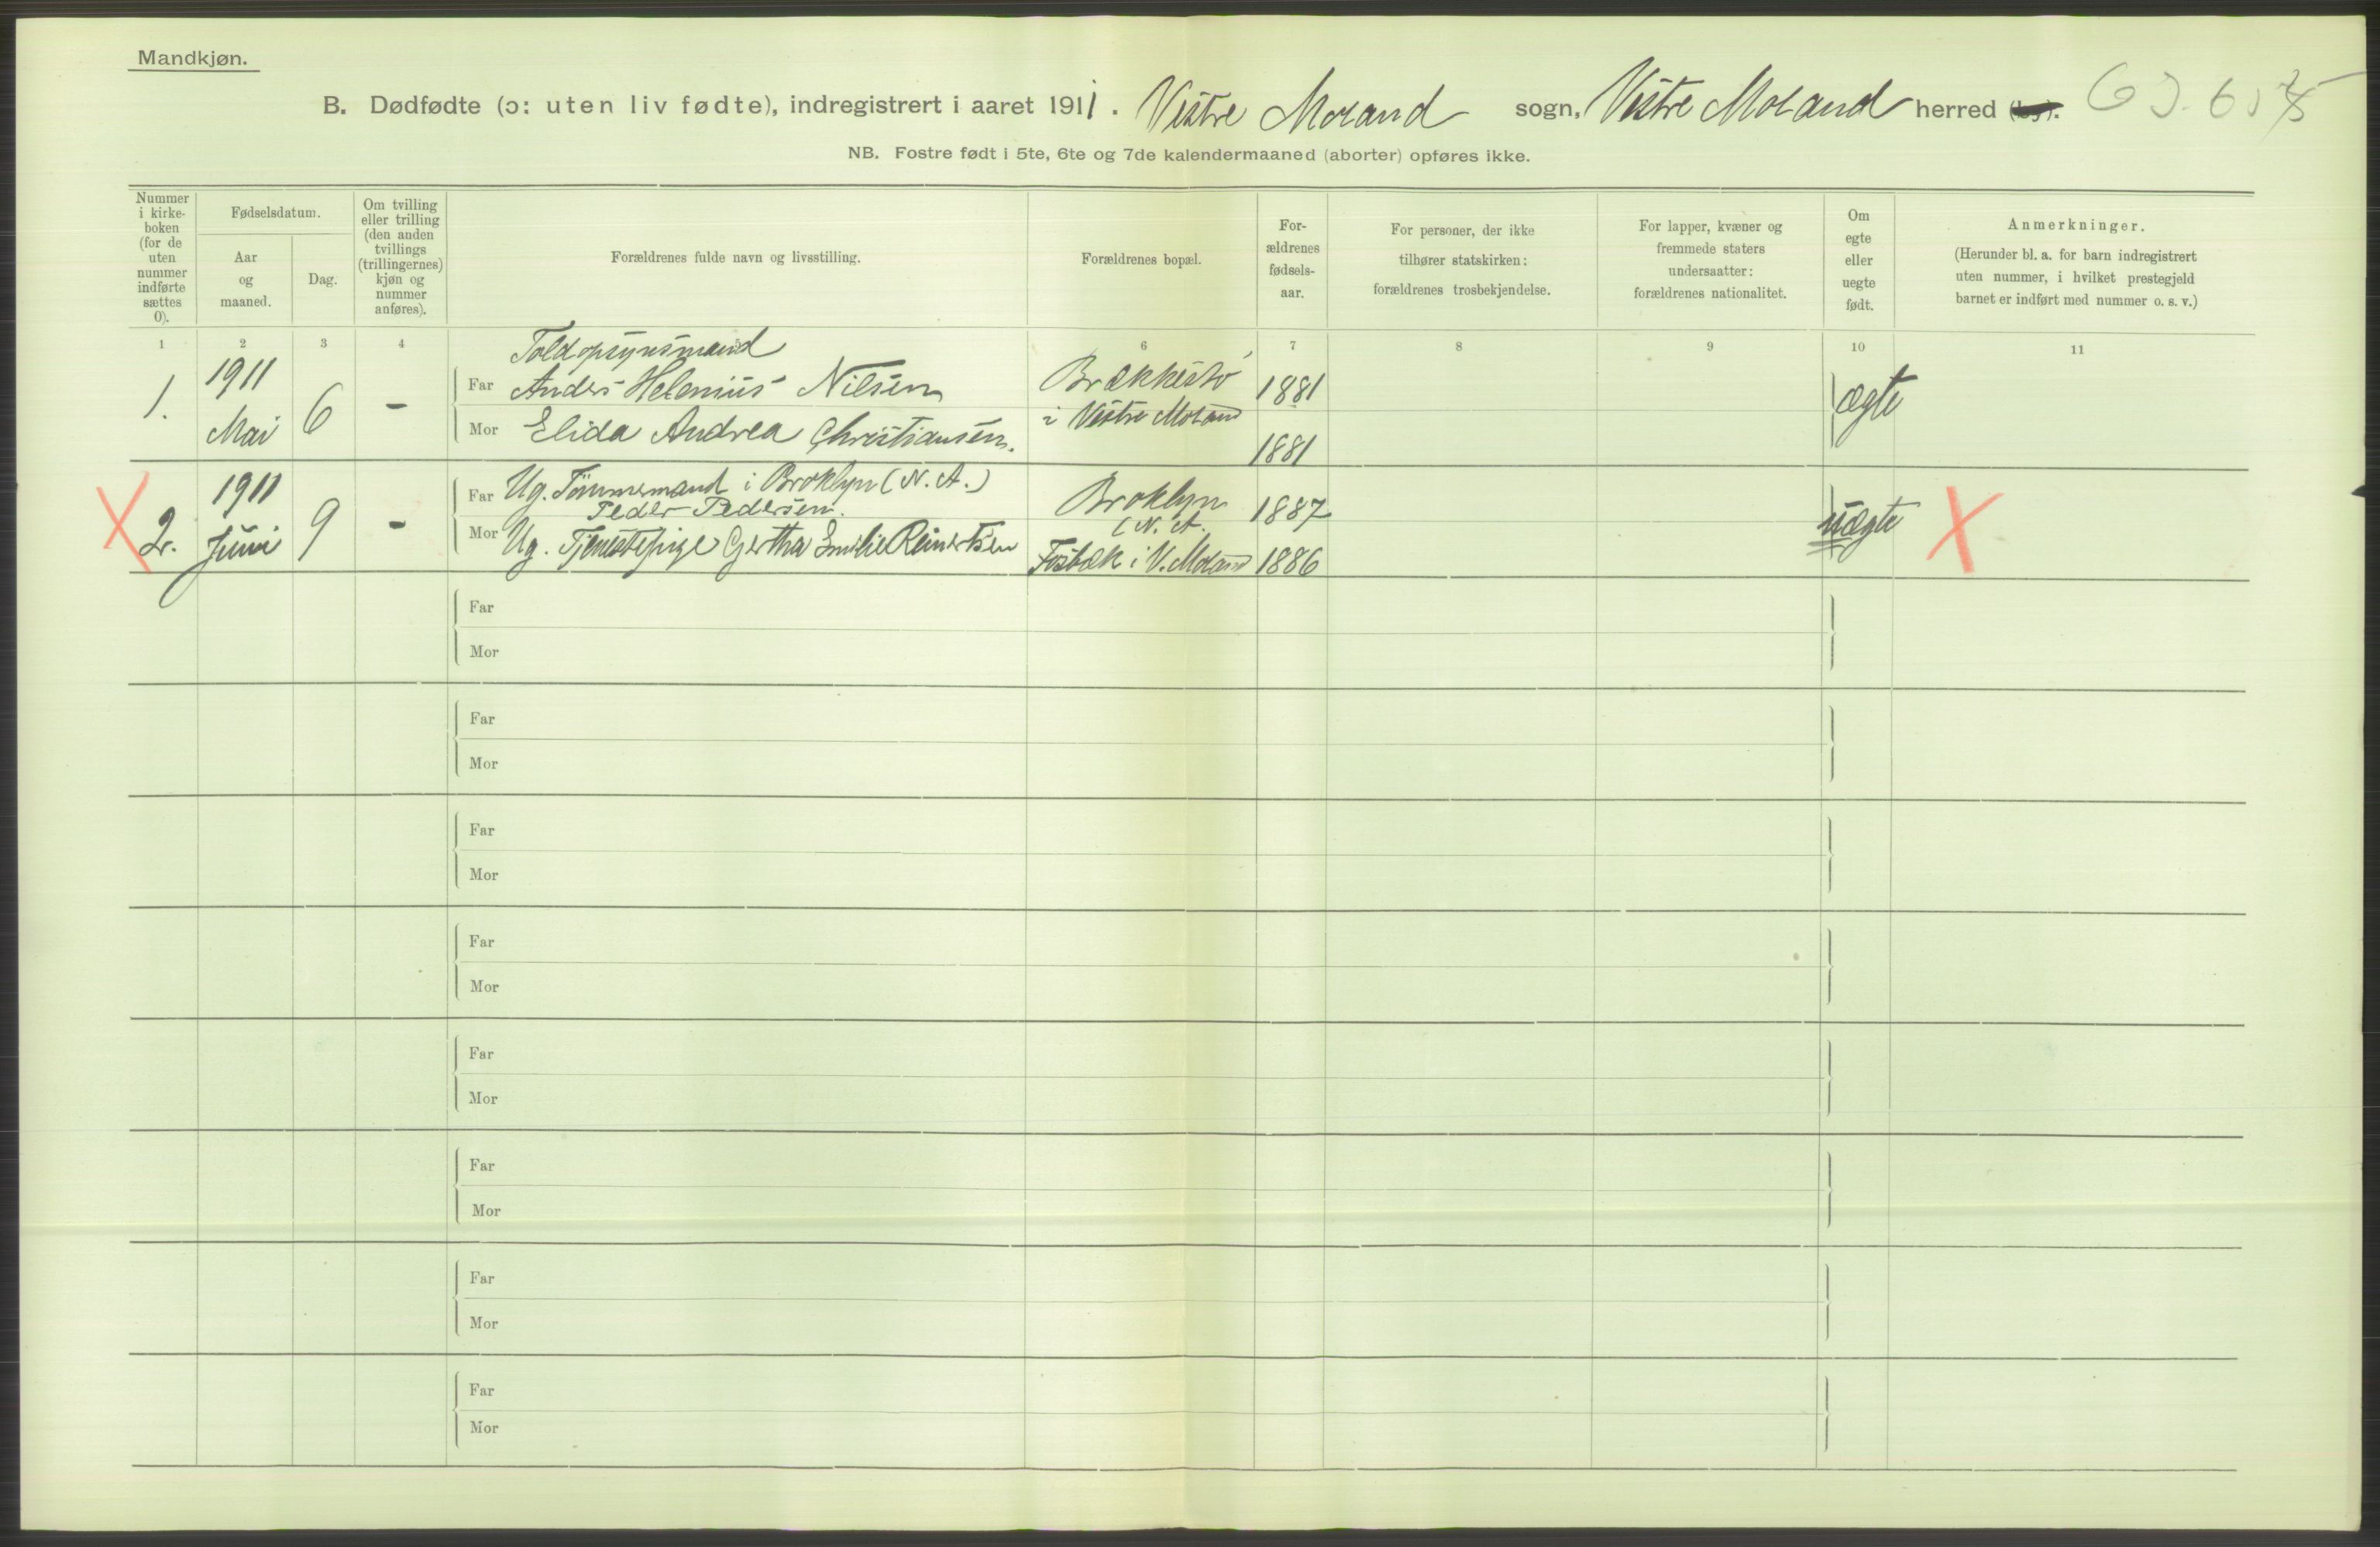 Mandkjøn.
B. Dødfødte (ɔ: uten liv fødte), indregistrert i aaret 1911. Vestre Moland sogn, Vestre Moland herred
NB. Fostre født i 5te, 6te og 7de kalendermaaned (aborter) opføres ikke.
Nummer
i kirke-
boken
(for de
uten
nummer
indførte
sættes
0).
Fødselsdatum.
Aar
og
maaned.
Dag.
Om tvilling
eller trilling
(den anden
tvillings
(trillingernes)
kjøn og
nummer
anføres).
Forældrenes fulde navn og livsstilling.
Forældrenes bopæl.
For-
ældrenes
fødsels-
aar.
For personer, der ikke
tilhører statskirken:
forældrenes trosbekjendelse.
For lapper, kvæner og
fremmede staters
undersaatter:
forældrenes nationalitet.
Om
egte
eller
uegte
født.
Anmerkninger.
(Herunder bl. a. for barn indregistrert
uten nummer, i hvilket prestegjeld
barnet er indført med nummer o. s. v.)
1 2 3 4 6 7 8 9 10 11
1.
1911
Mai
6
-
Toldopsynsmand
Far Anders Helenius Nilsen
Mor Elida Andrea Christiansen.
Brækkestø
i Vestre Moland
1881
1881
ægte
2.
1911
Juni
9
-
Far Ug. Tømmermand i Broklyn (N. A.)
Peder Pedersen.
Mor Ug. Tjenestepige Gertha Emilie Reinertsen
Broklyn
(N. A.
Fosbæk i V. Moland
1887
1886
uægte
Far
Mor
Far
Mor
Far
Mor
Far
Mor
Far
Mor
Far
Mor
Far
Mor
Far
Mor